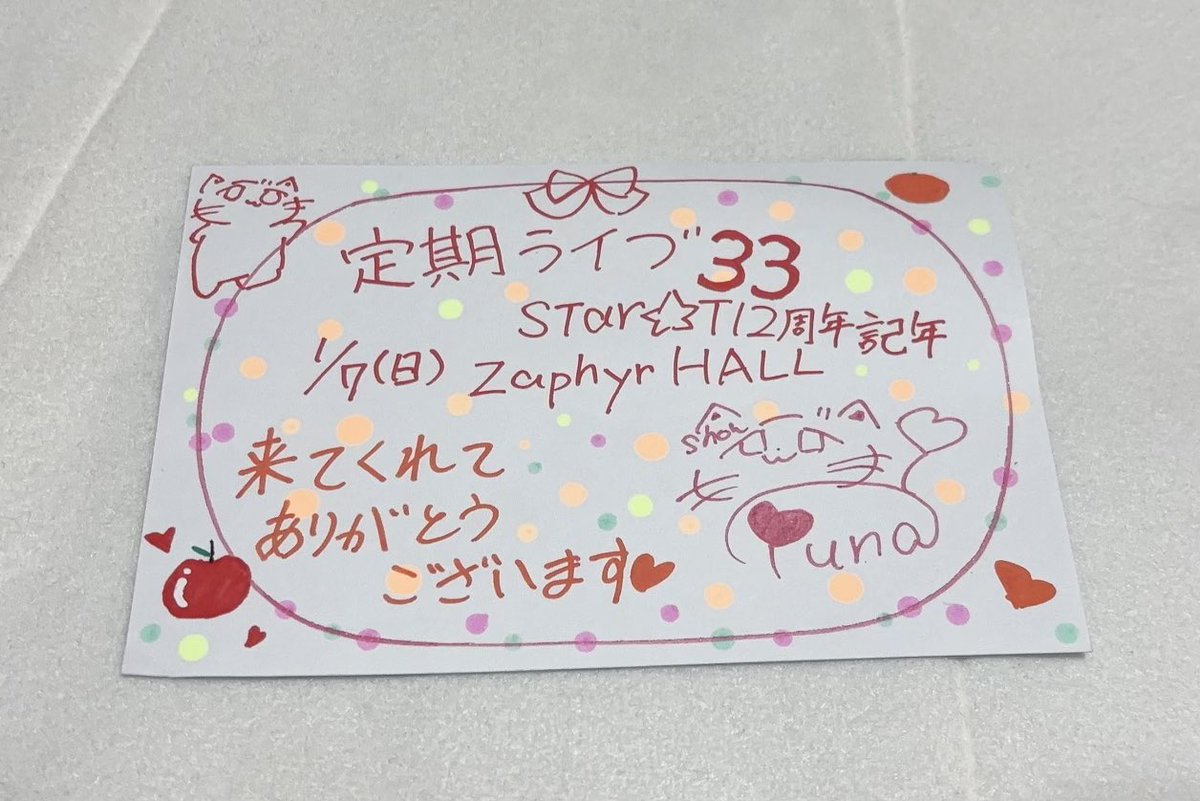 定期ライブ33
STar☆T12周年記年
1/7(日) Zaphyr HALL
来てくれて
ありがとう
ございます♥
Show
Yuna